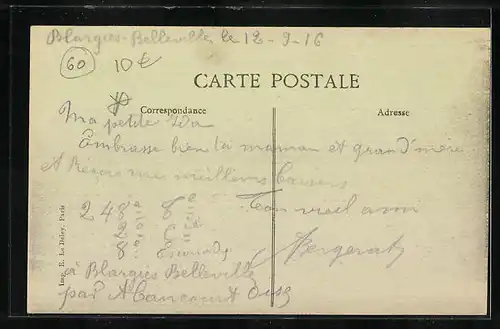 Blargies-Belleville le 12-9-16
60 10€
CARTE POSTALE
Correspondance Adresse
Ma petite Ida
Embrasse bien ta maman et grand'mère
mes meilleurs baisers
248e
Ton vieil ami
8e
Bergerat
à Blargies Belleville
par Abancourt Oise
Imp. E. Le Deley, Paris